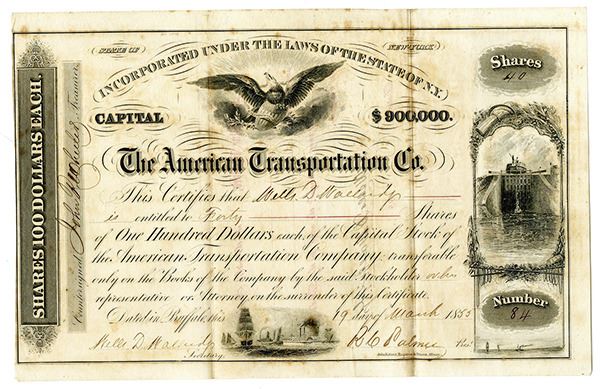 STATE OF NEW-YORK
INCORPORATED UNDER THE LAWS OF THE STATE OF N.Y.
CAPITAL $900,000.
Shares
40
SHARES 100 DOLLARS EACH.
Countersigned Treasurer
The American Transportation Co.
This Certifies that Wells D Walbridge
is entitled to Forty Shares
of One Hundred Dollars each, of the Capital Stock of
the American Transportation Company, transferable
only on the Books of the Company by the said Stockholder or his
representative or Attorney on the surrender of this Certificate.
Dated in Buffalo, this 19 Day of March 1855
Number
84
Wells D Walbridge
Secretary. Pres